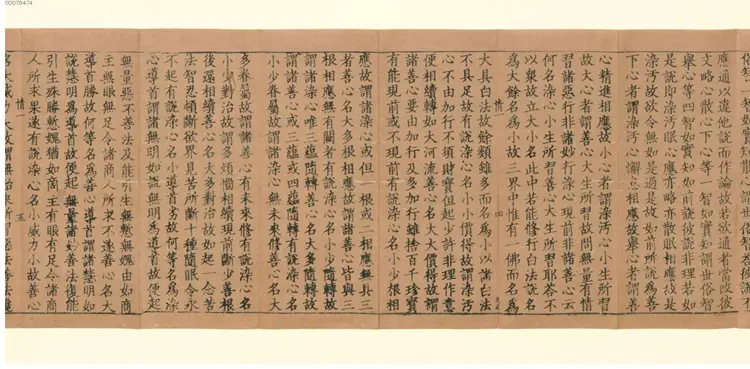 應通以違他說而作論故若欲通者當改彼
文略心散心下心等一智如實知謂世俗智
舉心等四智如實知如前說彼說非理若如
是說即染汚眠心應亦略亦散眠相應故是
染汚故欲令無如是過是故如前所說為善
下心者謂染汚心懈怠相應故舉心者謂善
心精進相應故小心者謂染汚心小生所習
故大心者謂善心大生所習故問無量有情
習諸惡行非諸妙行染心現前非諸善心云
何名染心小生所習善心大生所習耶荅不
以衆故立大小名此中若能修行白法說名
為大餘名為小故三界中惟有一佛而名為
情一 四
大具白法故餘類雖多而名為小以諸白法
不具足故有說染心名小小價得故謂染汚
心不由加行不須財寶但起少許非理作意
便相續轉如大河流善心名大大價得故謂
諸善心要由加行及多加行雖捨百千珍寶
有能現前或不現前有說染心名小少根相
應故謂諸染心或但一根或二相應無具三
者善心名大多根相應故謂諸善心皆與三
根相應無有闕者有說染心名小少隨轉故
謂諸染心唯三蘊隨轉善心名大多隨轉故
謂諸善心或三蘊或四蘊隨轉有說染心名
小少眷屬故謂諸染心無未來修善心名大
多眷屬故謂諸善心有未來修有說染心名
小少對治故謂多煩惱相續現前斷少善根
後還相續善心名大多對治故如起一念苦
法智忍頓斷欲界見苦所斷十種隨眠令永
不起有說染心名小導首劣故何等名為染
心導首謂諸無明如說無明為導首故便起
無量惡不善法及能引生無慙無愧由如商
主無眼無足令諸商人所求不遂善心名大
導首勝故何等名為善心導首謂諸慧明如
說慧明為導首故便起無量諸妙善法復能
引生殊勝慙愧猶如商主有眼有足令諸商
人所求果遂有說染心名小威力小故善心
情一 五
名大威力大故謂無始來所習惡法善法
00078474